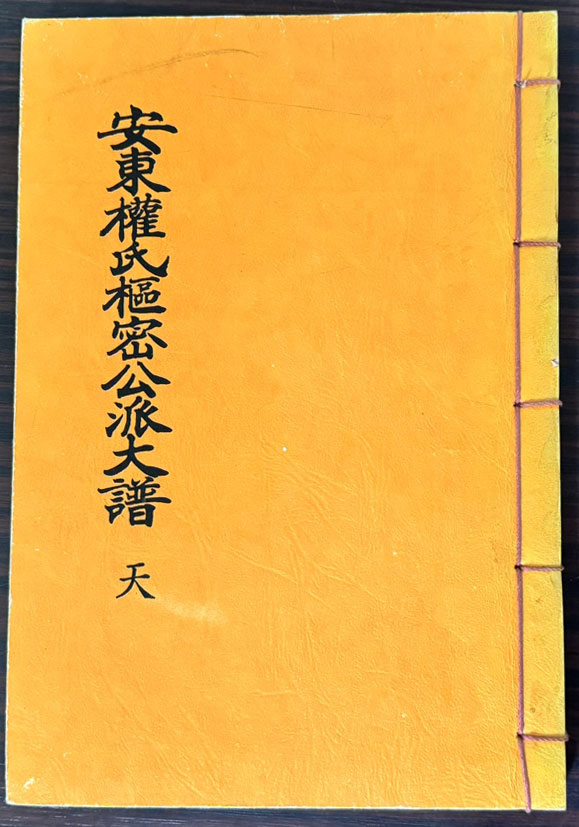 安東權氏樞密公派大譜
天